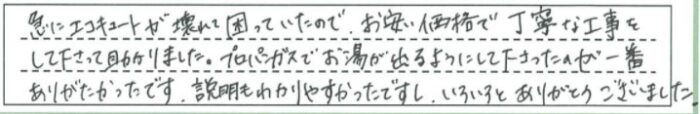 急にエコキュートが壊れて困っていたので、お安い価格で丁寧な工事を
して下さって助かりました。プロパンガスでお湯が出るようにして下さったのが一番
ありがたかったです、説明もわかりやすかったですし、いろいろとありがとうございました